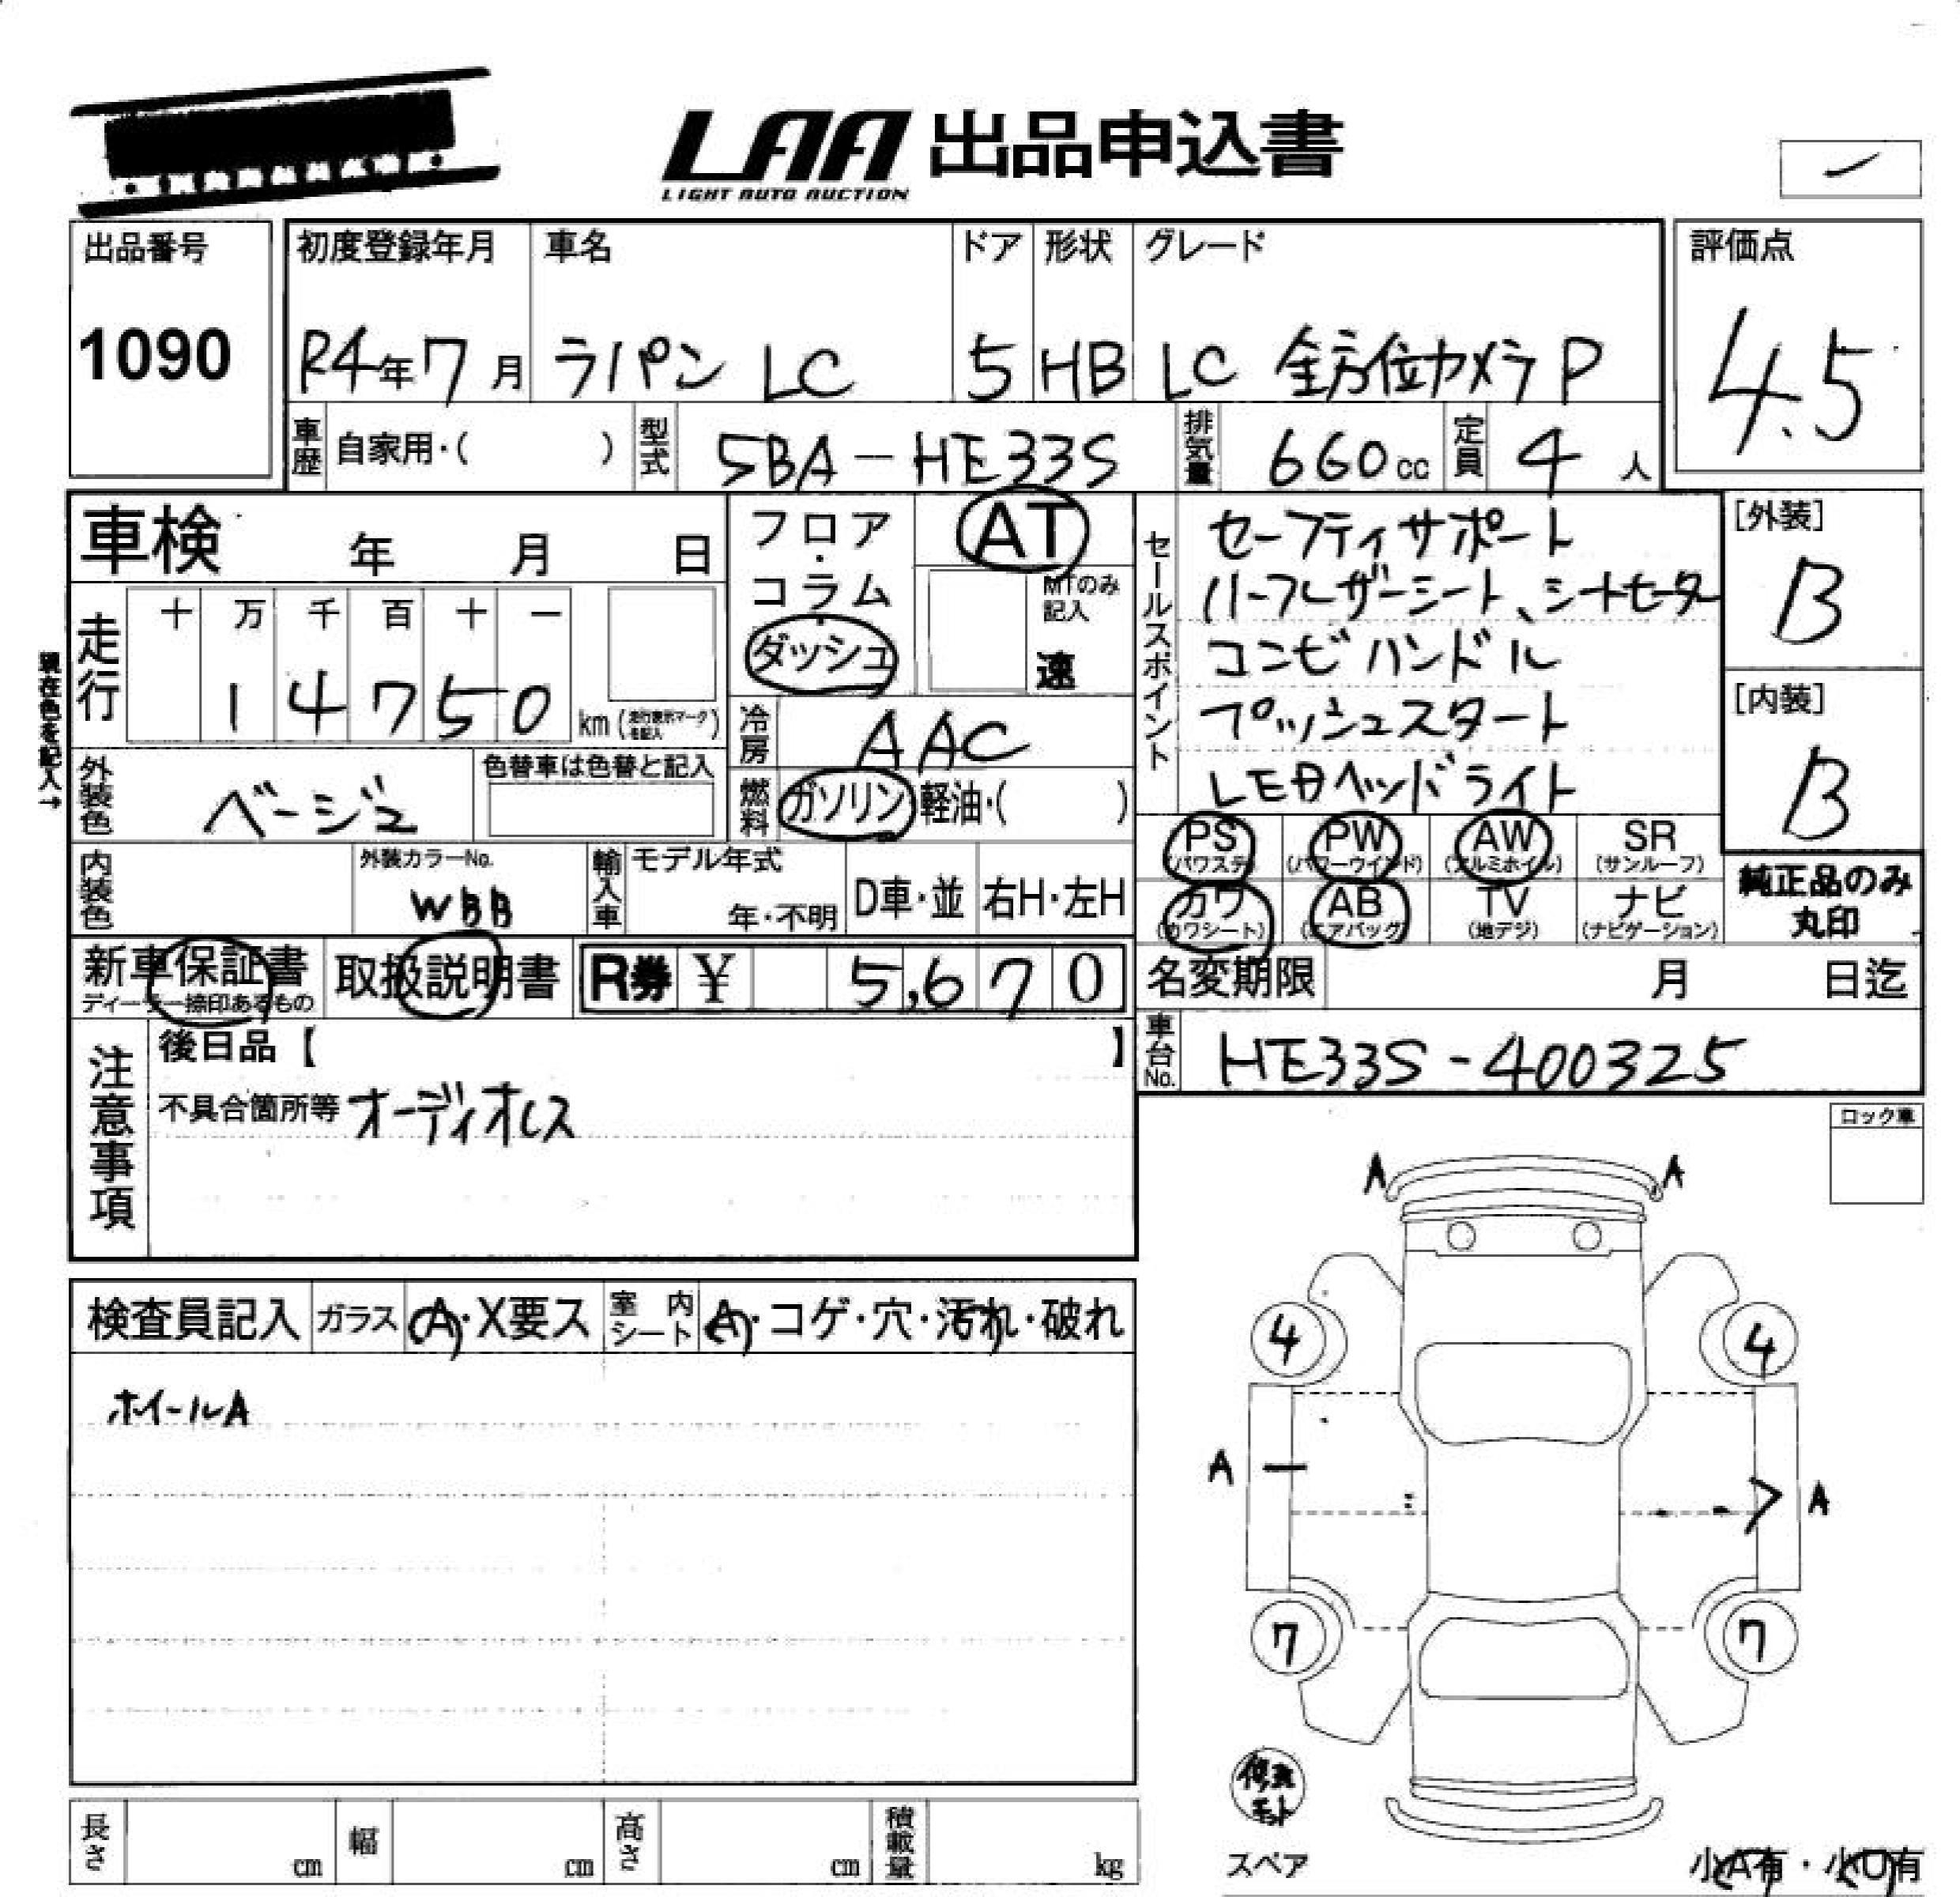 LAA 出品申込書
LIGHT AUTO AUCTION
出品番号
1090
初度登録年月
R4年7月
車名
ラパン LC
ドア
5
形状
HB
グレード
LC 全方位カメラP
評価点
4.5
車歴 自家用・( )
型式 5BA-HE33S
排気量 660cc
定員 4人
車検 年 月 日
フロア・コラム・ダッシュ
AT
MTのみ記入
速
セールスポイント
セーフティサポート
ハーフレザーシート、シートヒーター
コンビハンドル
プッシュスタート
LEDヘッドライト
[外装]
B
[内装]
B
現在色を記入→
走行
十 万 千 百 十 一
1 4 7 5 0 km (走行表示マークを記入)
冷房 AAC
外装色 ベージュ
色替車は色替と記入
燃料 ガソリン・軽油・( )
PS (パワステ) PW (パワーウインド) AW (アルミホイル) SR (サンルーフ)
カワ (カワシート) AB (エアバッグ) TV (地デジ) ナビ (ナビゲーション)
純正品のみ丸印
内装色
外装カラーNo.
WBB
輸入車
モデル年式
年・不明
D車・並
右H・左H
新車保証書
ディーラー捺印あるもの
取扱説明書
R券 ¥ 5,670
名変期限 月 日迄
車台No. HE33S-400325
注意事項
後日品【 】
不具合箇所等 オーディオレス
ロック車
検査員記入 ガラス A・X要ス 室内シート A・コゲ・穴・汚れ・破れ
ホイールA
A A
4 4
A A
7 7
修理キット
スペア
小A有・小U有
長さ cm 幅 cm 高さ cm 積載量 kg